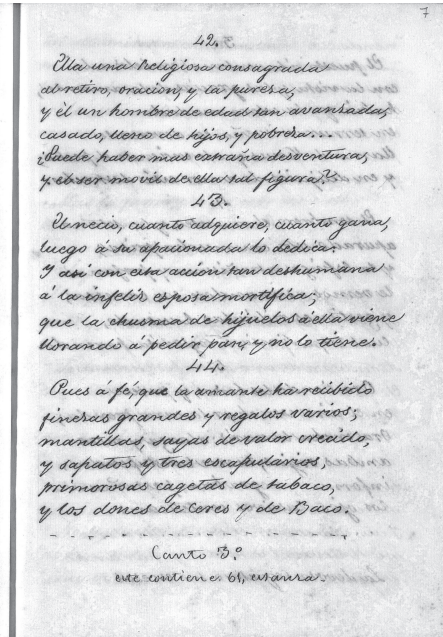 7
42.
Ella una Religiosa consagrada
al retiro, oracion, y la puresa,
y él un hombre de edad tan avansada,
casado, lleno de hijos, y pobresa...
¿Puede haber mas extraña desventura,
y el ser movil de ella tal figura?
43.
El necio, cuanto adquiere, cuanto gana,
luego á su apacionada lo dedica.
Y asi con esta accion tan deshumana
á la infeliz esposa mortifica,
que la chusma de hijuelos á ella viene
llorando á pedir pan, y no lo tiene.
44.
Pues á fé, que la amante ha recibido
finesas grandes y regalos varios,
mantillas, sayas de valor crecido,
y sapatos y tres escapularios,
primorosas cagetas de tabaco,
y los dones de Ceres y de Baco.
Canto 3.º
este contiene 61, estansa.